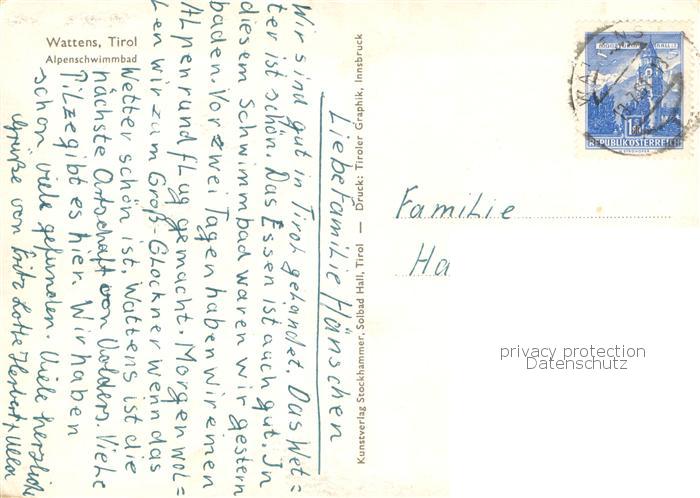 Wattens, Tirol
Alpenschwimmbad
Liebe Familie Hänschen
Wir sind gut in Tirol gelandet. Das Wet=
ter ist schön. Das Essen ist auch gut. In
diesem Schwimmbad waren wir gestern
baden. Vor zwei Tagen haben wir einen
Alpenrundflug gemacht. Morgen wol=
len wir zum Groß-Glockner wenn das
Wetter schön ist. Wattens ist die
nächste Ortschaft von Volders. Viele
Pilze gibt es hier. Wir haben
schon viele gefunden. Viele herzliche
Grüße von Fritz Lotte Herbert u. Ulla
Kunstverlag Stockhammer, Solbad Hall, Tirol — Druck: Tiroler Graphik, Innsbruck
WATTENS
REPUBLIK ÖSTERREICH
Familie
Ha
privacy protection
Datenschutz